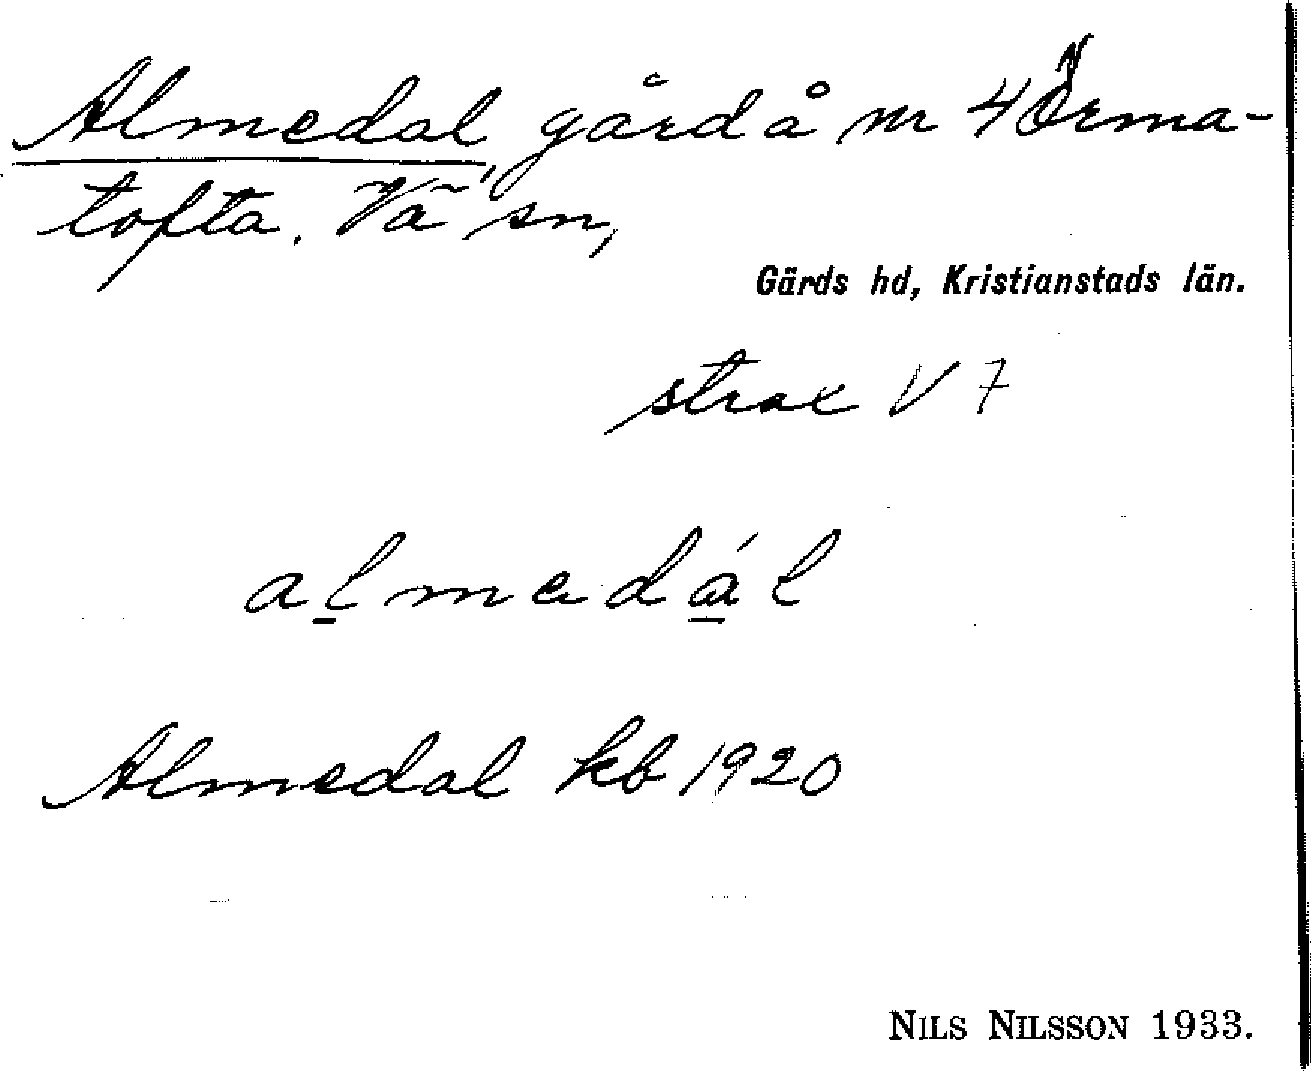 Almedal, gård å nr 4 Örma-
tofta. Vä sn,
Gärds hd, Kristianstads län.
strax V 7
almadál
Almedal kb 1920
NILS NILSSON 1933.